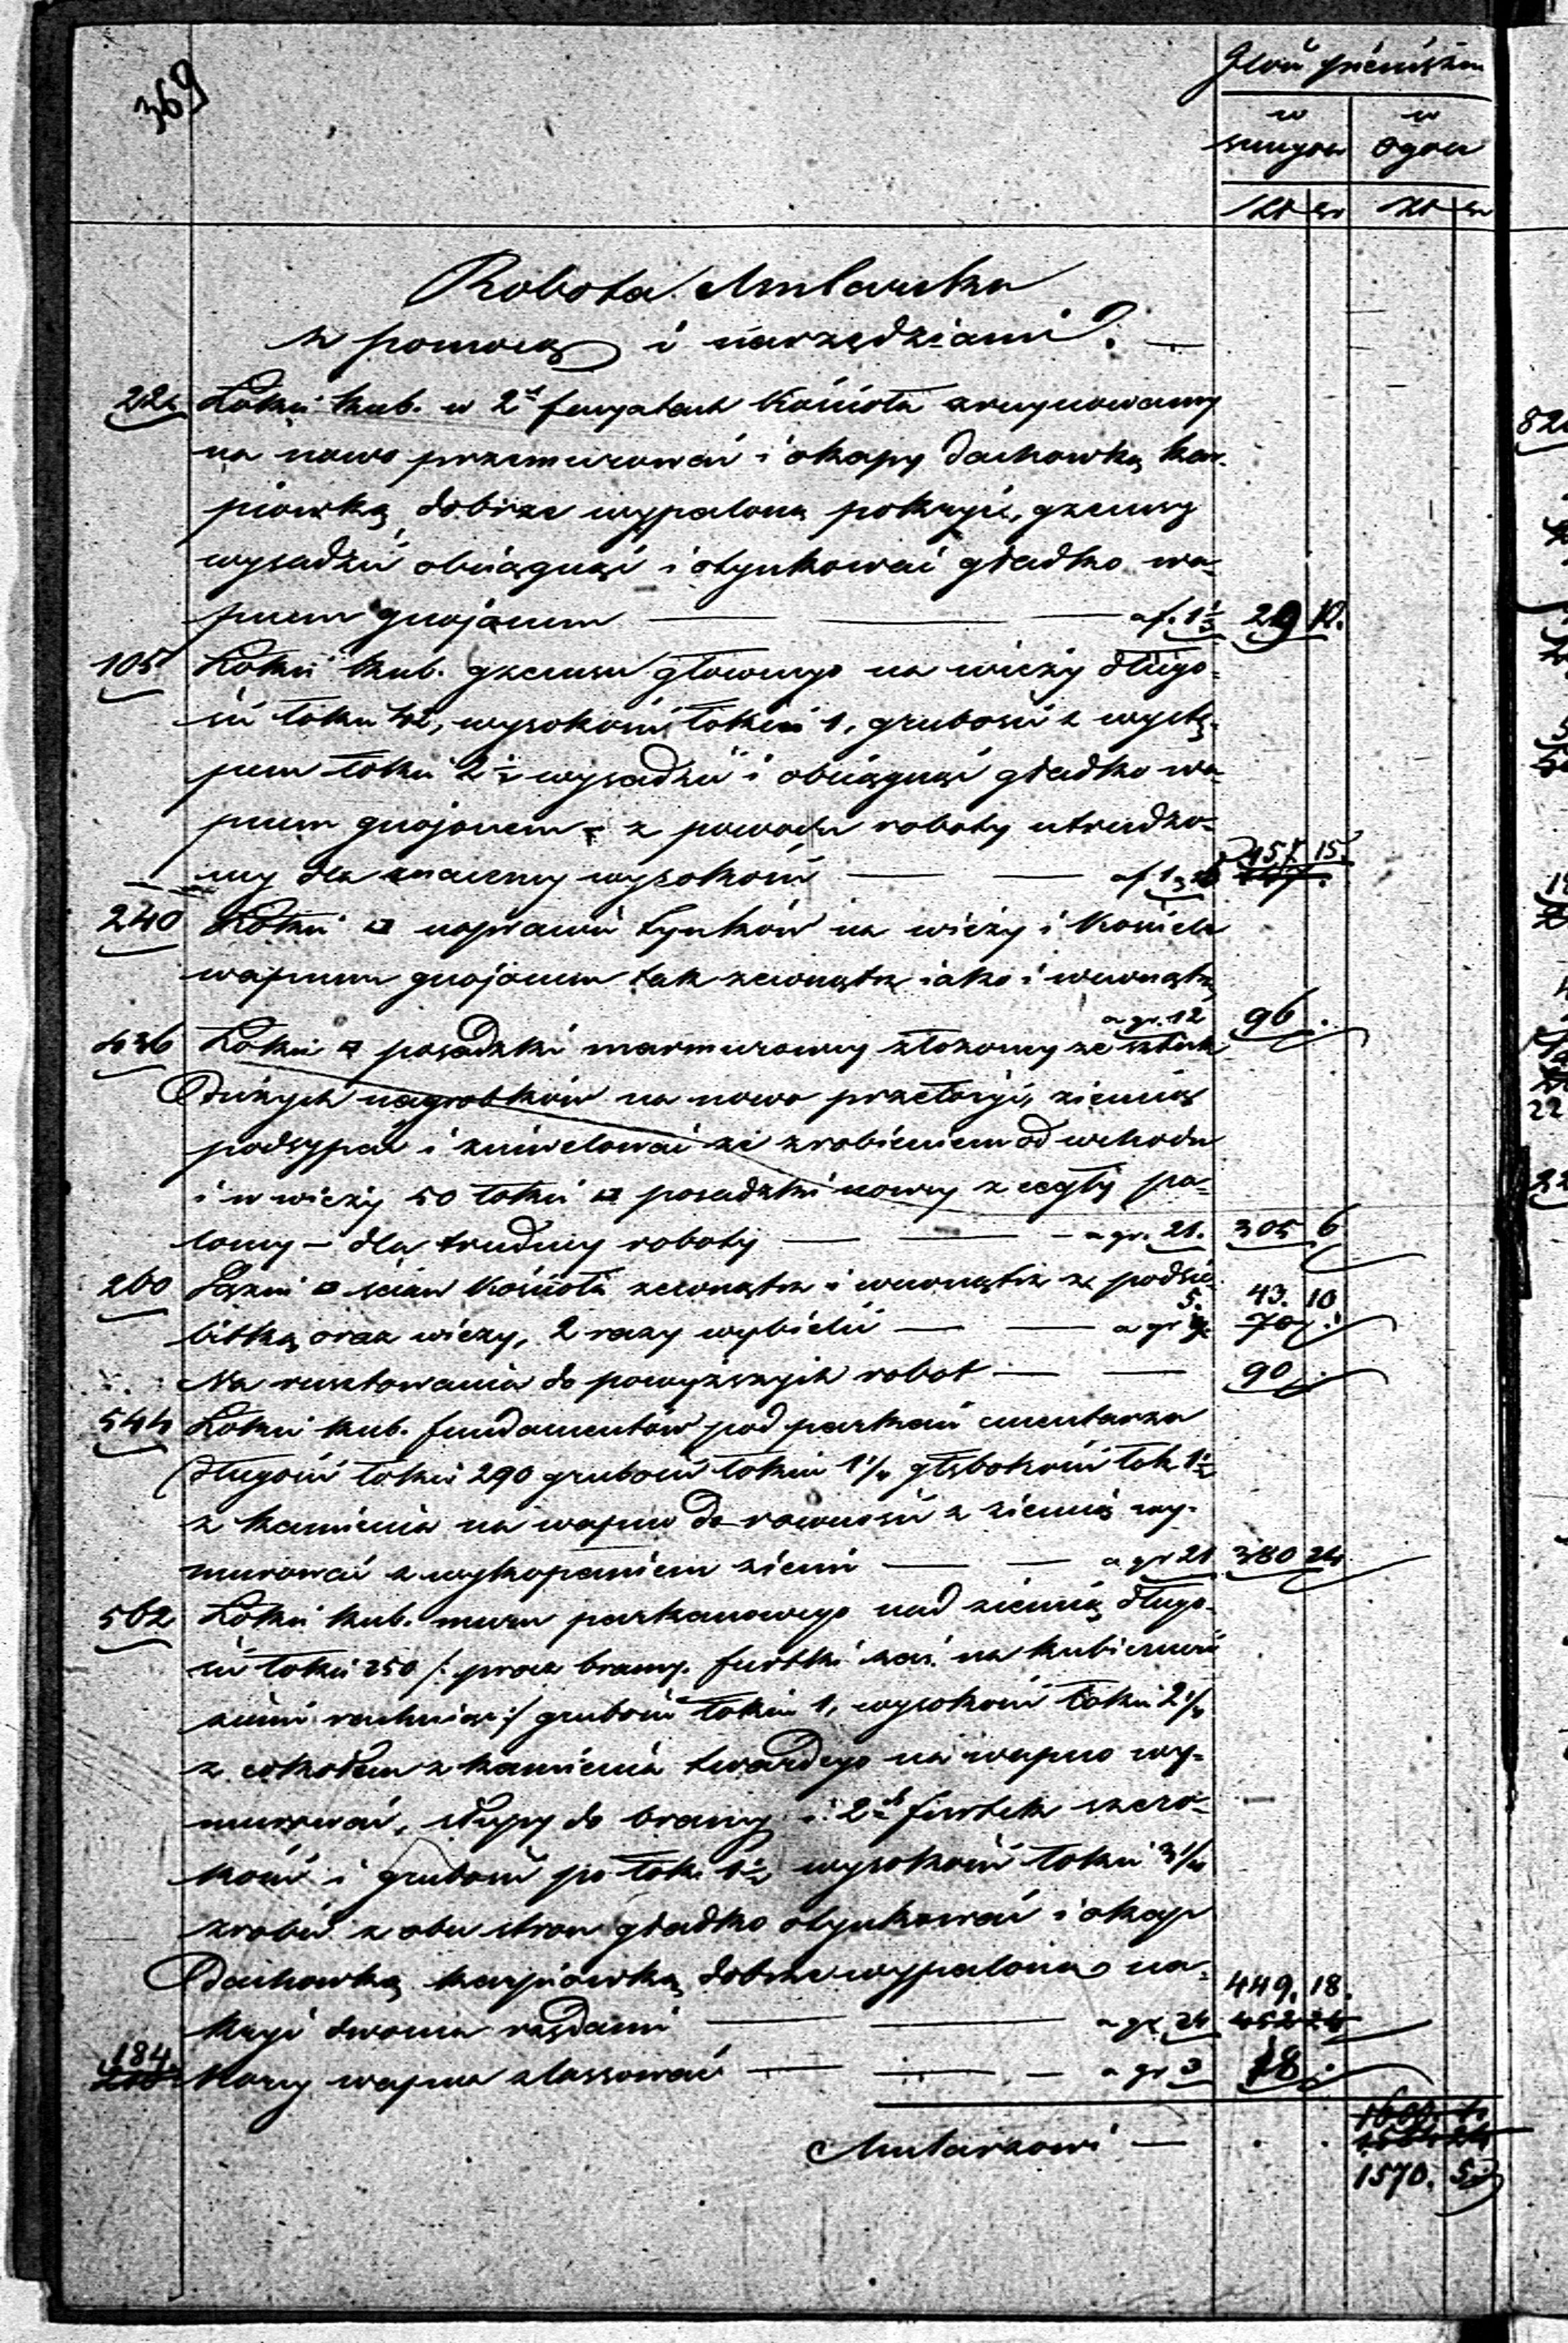 369
Ilość pieniężna
w w
szczególe ogóle
złp gr złp gr
Robota Mularska
z pomocą i narzędziami.
22 Łokci kub. w 2ch facyatach Kościoła zruynowaney
na nowo przemurować i okapy dachowką kar-
piowką dobrze wypaloną pokryć, gzemsy
wysadzić obciągnąć i otynkować gładko wa-
pnem gnojonem — — af. 1⅓ 29 10.
105 Łokci kub. gzemsu głownego na wieży długo-
ści łokci 42, wysokości łokci 1, grubości z wystę-
pem łokci 2½ wysadzić i obciągnąć gładko wa-
pnem gnojonem z powodu roboty utrudzo-
ney dla znaczney wysokości — — af. 1 157 15
240 Łokci □ naprawić tynków na wieży i Kościele
wapnem gnojonem tak zewnątrz iako i wewnątrz
a gr. 12 96 .
436 Łokci □ posadzki marmurowey złożoney ze sztuk
dużych nagrobków na nowo przełożyć, ziemią
podsypać i zniwelować ze zrobieniem od wchodu
i w wieży 50 łokci □ posadzki nowey z cegły pa-
loney — dla trudney roboty — — a gr. 21. 305 6
260 Sążni □ ścian Kościoła zewnątrz i wewnątrz z podsie-
bitką oraz wieży, 2 razy wybielić — — a gr 5. 43. 10
70 .
Na rusztowania do powyższych robot — — 90 .
544 Łokci kub. fundamentów pod parkan cmentarza
długości łokci 290 grubości łokci 1¼ głębokości łok 1½
z kamienia na wapno do rowności z ziemią wy-
murować z wykopaniem ziemi — — a gr 21 380 24
562 Łokci kub. muru parkanowego nad ziemią długo-
ści łokci 250 /: procz bramy, furtki zaś na kubiczność
ziemi rachuiąc :/ grubości łokci 1, wysokości łokci 2¼
z cokołem z kamienia twardego na wapno wy-
murować, słupy do bramy i 2ch furtek szero-
kości i grubości po łok. 1½, wysokości łokci 3¼
zrobić z obu stron gładko otynkować i okap
dachowką karpiowką dobrze wypaloną na-
kryć dwoma rzędami — — a gr 24 449. 18.
452 24
184 Korcy wapna zlassować — — a gr 3 18 .
Mularzowi — . .
1570. 5